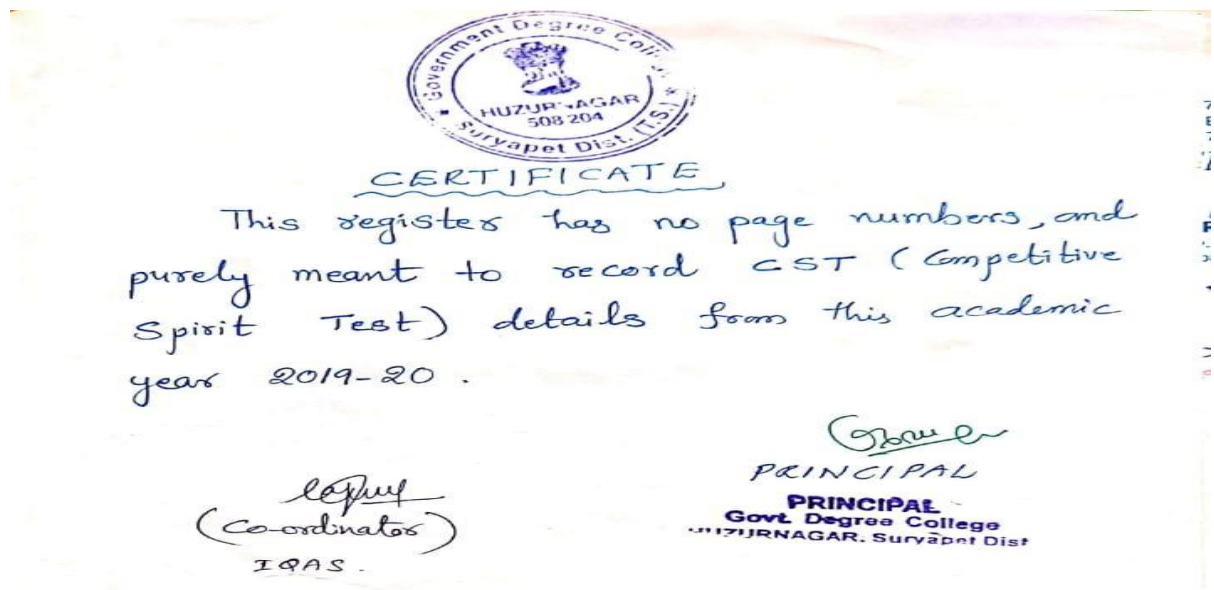 Government Degree College
HUZURNAGAR
508 204
Suryapet Dist. (T.S.)
CERTIFICATE
This register has no page numbers, and
purely meant to record CST (Competitive
Spirit Test) details from this academic
year 2019-20.
PRINCIPAL
PRINCIPAL
Govt. Degree College
HUZURNAGAR. Suryapet Dist
(Co-ordinator)
IQAS.